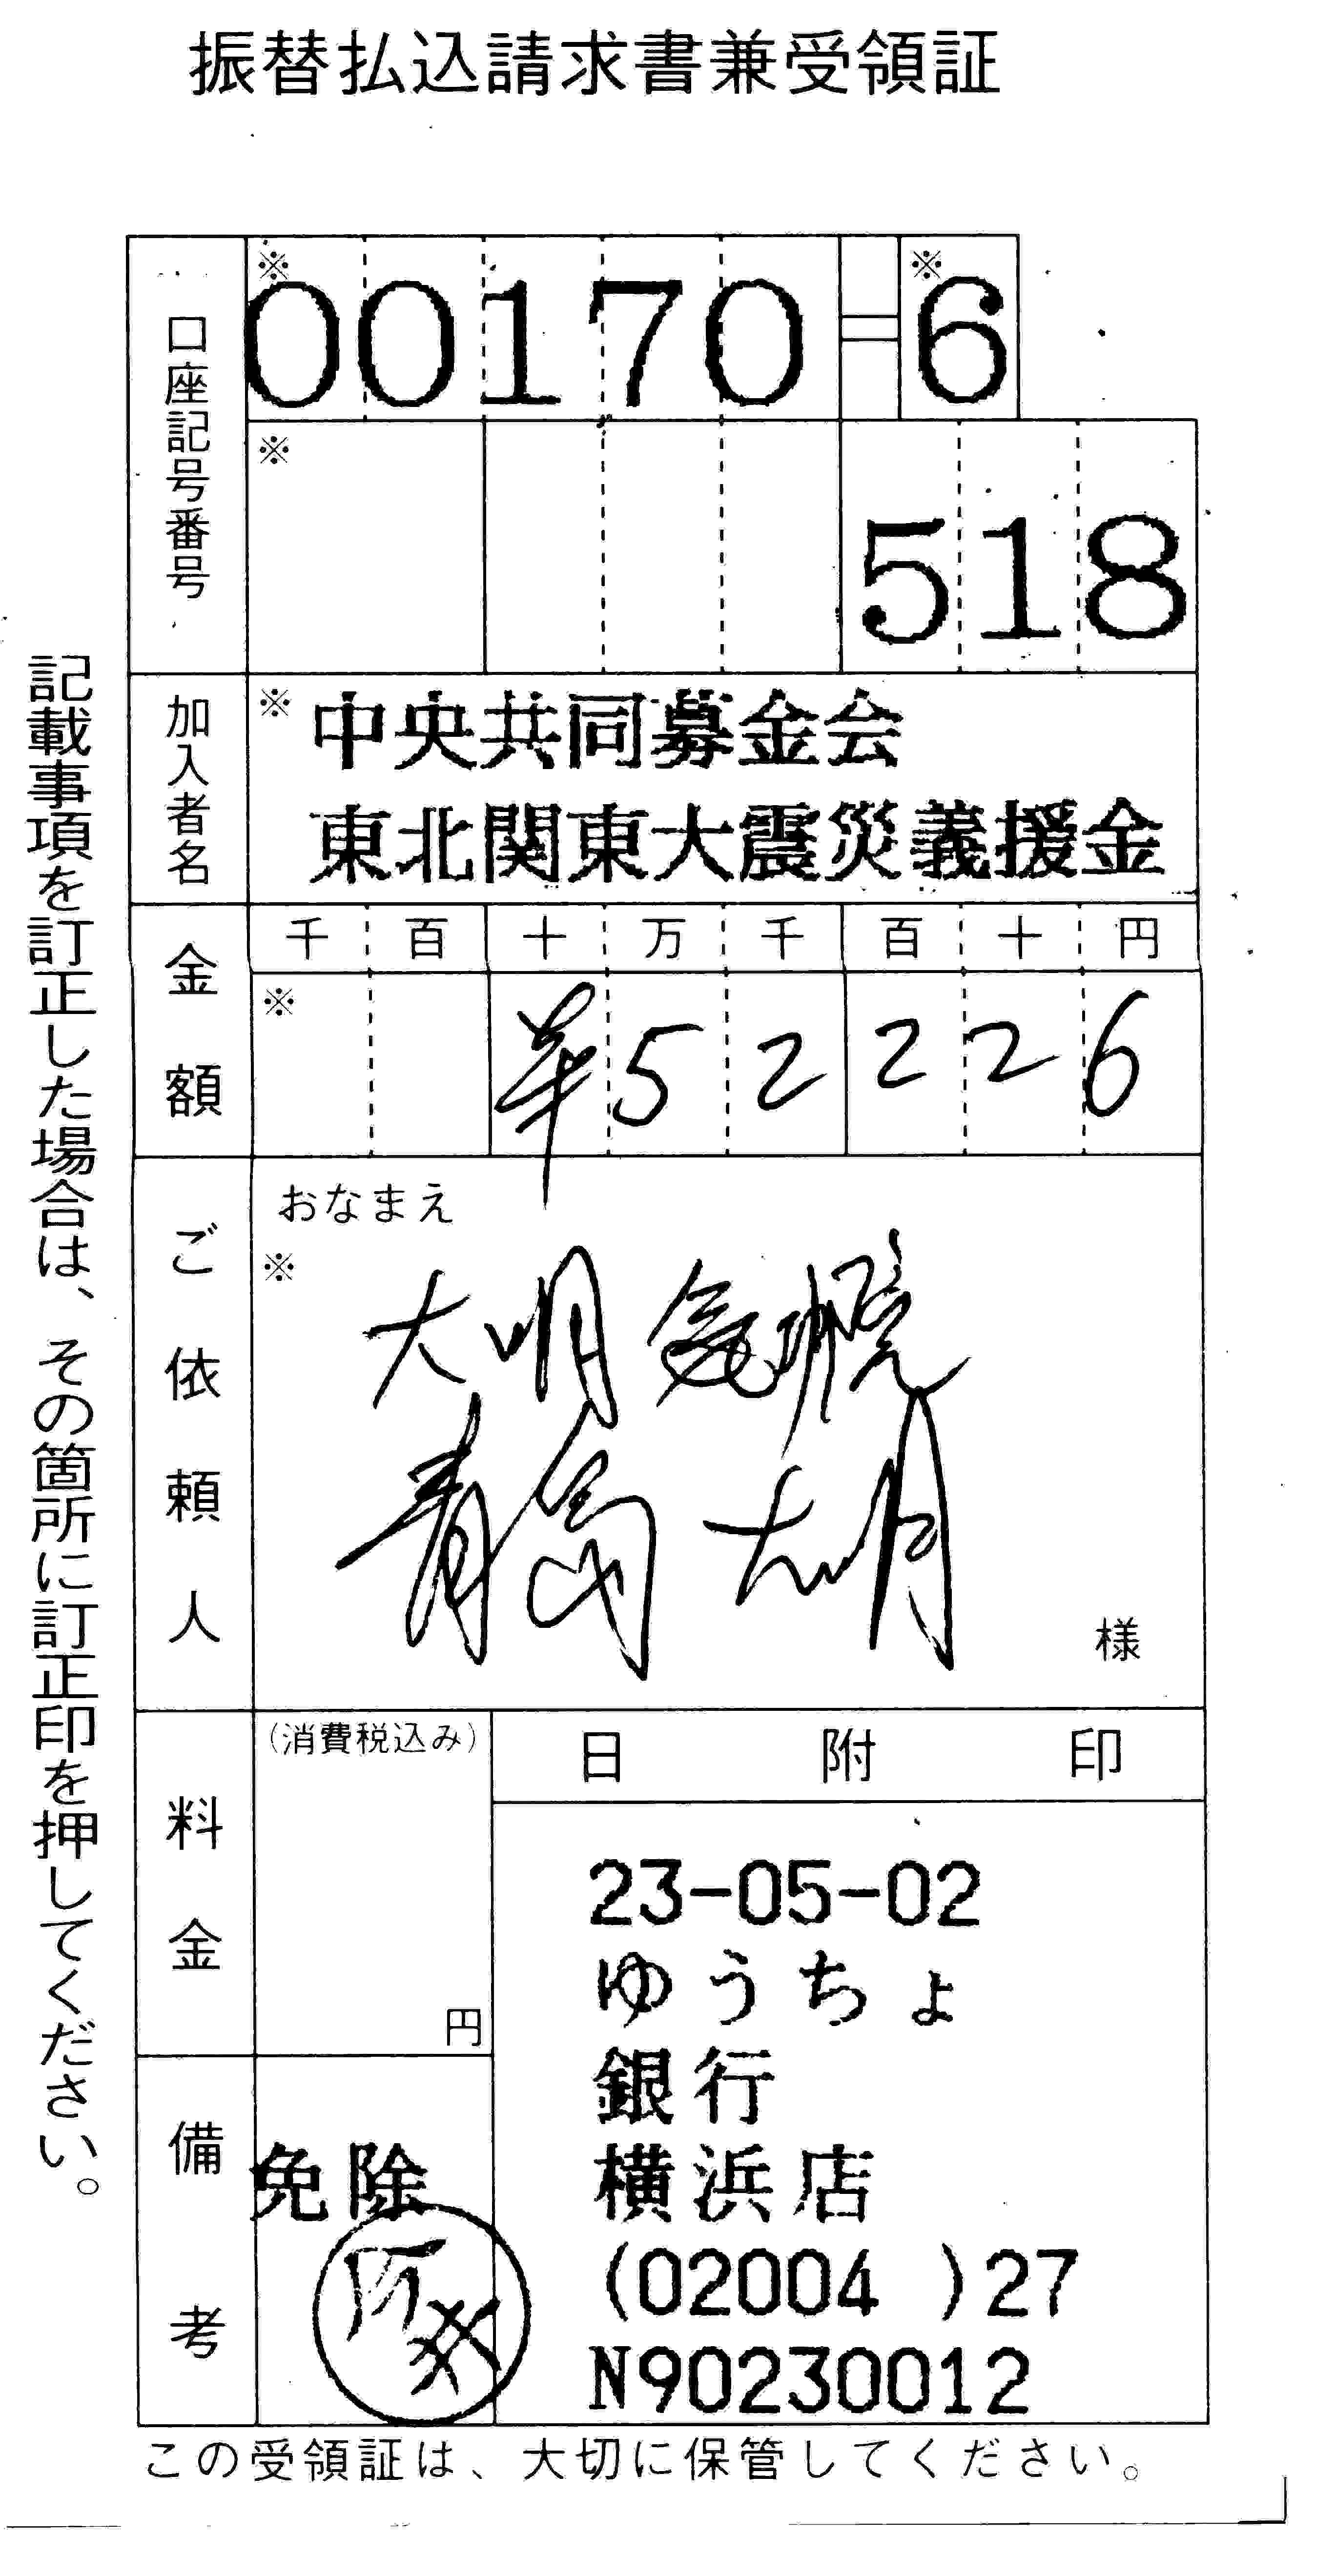 振替払込請求書兼受領証
口座記号番号
※
00170
※
6
※
518
加入者名
※
中央共同募金会
東北関東大震災義援金
金額
千 百 十 万 千 百 十 円
※
52226
ご依頼人
おなまえ
※
大明
様
料金
(消費税込み)
円
日附印
23-05-02
ゆうちょ
銀行
横浜店
(02004 )27
N90230012
備考
免除
記載事項を訂正した場合は、その箇所に訂正印を押してください。
この受領証は、大切に保管してください。